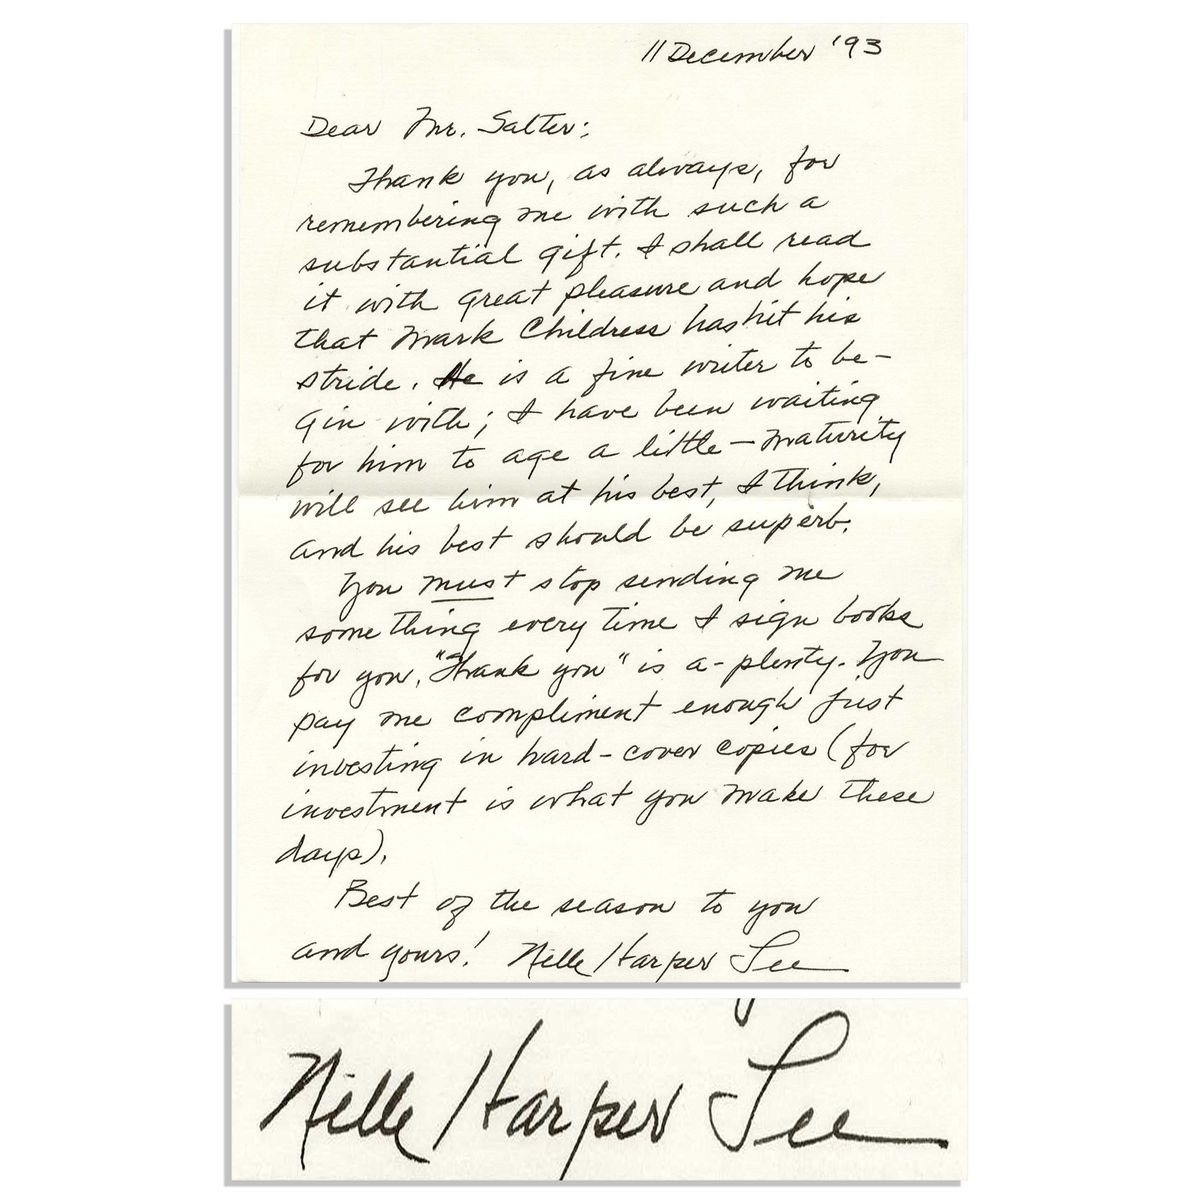 11 December '93
Dear Mr. Salter:
Thank you, as always, for
remembering me with such a
substantial gift. I shall read
it with great pleasure and hope
that Mark Childress has hit his
stride. He is a fine writer to be-
gin with; I have been waiting
for him to age a little — maturity
will see him at his best, I think,
and his best should be superb.
You must stop sending me
something every time I sign books
for you. "Thank you" is a-plenty. You
pay me compliment enough just
investing in hard-cover copies (for
investment is what you make these
days).
Best of the season to you
and yours! Nelle Harper Lee
Nelle Harper Lee